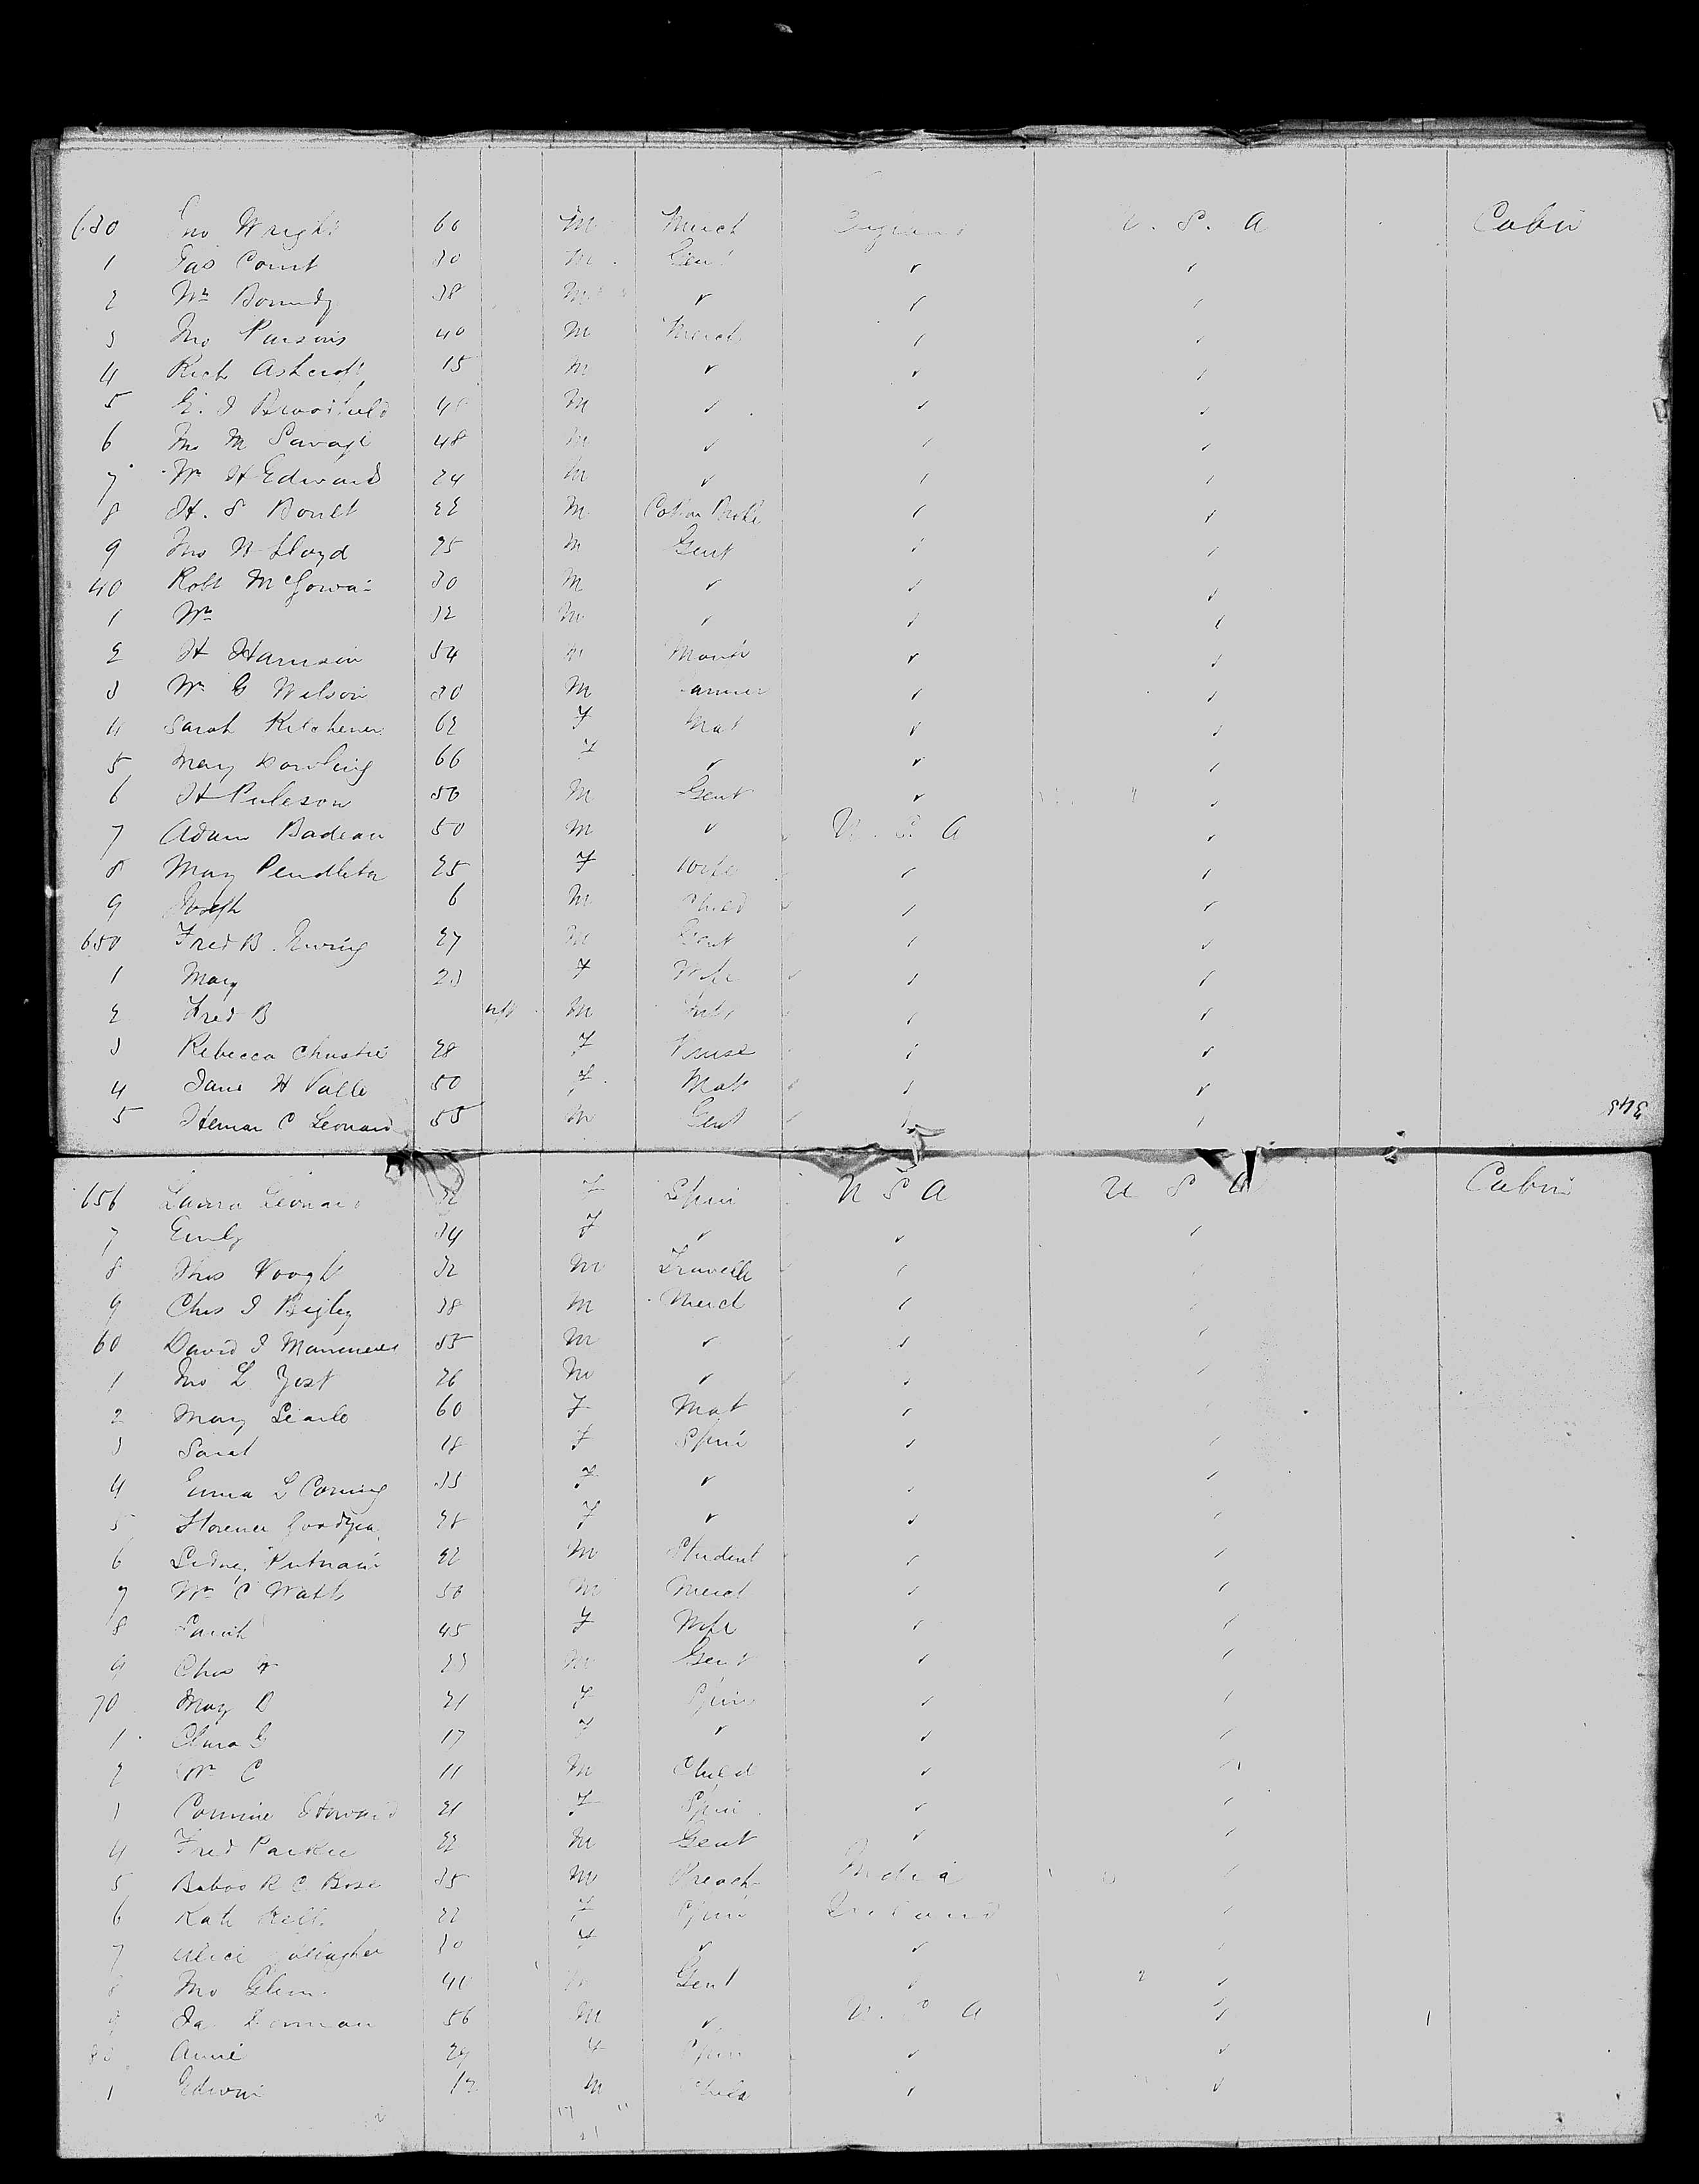 630 Jno Wright 60 M Merch England U. S. A Cabin
1 Jas Court 30 M Gent ✓ ✓
2 Wm 38 M ✓ ✓ ✓
3 Jno Parsons 40 M Merch ✓ ✓
4 Rich Ashcroft 15 M ✓ ✓ ✓
5 M ✓ ✓ ✓
6 Jno M Savage 48 M ✓ ✓ ✓
7 Wm H Edwards 24 M ✓ ✓ ✓
8 H. S Boult 22 M Cotton ✓ ✓
9 Jno H Lloyd 25 M Gent ✓ ✓
40 Robt McGowan 30 M ✓ ✓ ✓
1 Wm 32 M ✓ ✓ ✓
2 H Harrison 54 M ✓ ✓
3 Wm G Wilson 30 M Farmer ✓ ✓
4 Sarah Kitchener 62 F Mat ✓ ✓
5 Mary Dowling 66 F ✓ ✓ ✓
6 H Puleson 50 M Gent ✓ ✓
7 Adam Badeau 50 M ✓ U. S. A ✓
8 Mary Pendleton 25 F Wife ✓ ✓
9 Joseph 6 M Child ✓ ✓
650 Fred B. Ewing 27 M Gent ✓ ✓
1 Mary 23 F Wife ✓ ✓
2 Fred B M Inft ✓ ✓
3 Rebecca Christie 28 F Nurse ✓ ✓
4 Jane H Valle 50 F Mat ✓ ✓
5 Heman C Leonard 55 M Gent ✓ ✓
343
656 Laura Leonard 32 F Spin U S A U S A Cabin
7 Emily 34 F ✓ ✓ ✓
8 Thos 32 M Traveller ✓ ✓
9 Chas J Bigley 38 M Merch ✓ ✓
60 David J 55 M ✓ ✓ ✓
1 Jno L Yost 26 M ✓ ✓ ✓
2 Mary Searle 60 F Mat ✓ ✓
3 Sarah 18 F Spin ✓ ✓
4 Emma L Corning 35 F ✓ ✓ ✓
5 Florence Goodyear 28 F ✓ ✓ ✓
6 Sidney Putnam 22 M Student ✓ ✓
7 Wm C Watts 50 M Merch ✓ ✓
8 Sarah 45 F Wife ✓ ✓
9 Chas 23 M Gent ✓ ✓
70 May D 21 F Spin ✓ ✓
1 Clara 17 F ✓ ✓ ✓
2 Wm C 11 M Child ✓ ✓
3 Corinne Howard 21 F Spin ✓ ✓
4 Fred Parker 22 M Gent ✓ ✓
5 Baboo R C Bose 35 M Preach India ✓
6 Kate 22 F Spin Ireland ✓
7 Alice Gallagher 30 F ✓ ✓ ✓
8 Jno Glenn 40 M Gent ✓ ✓
9 56 M ✓ U. S A ✓ 1
80 Annie 29 F Spin ✓ ✓
1 Edwin 12 M Child ✓ ✓